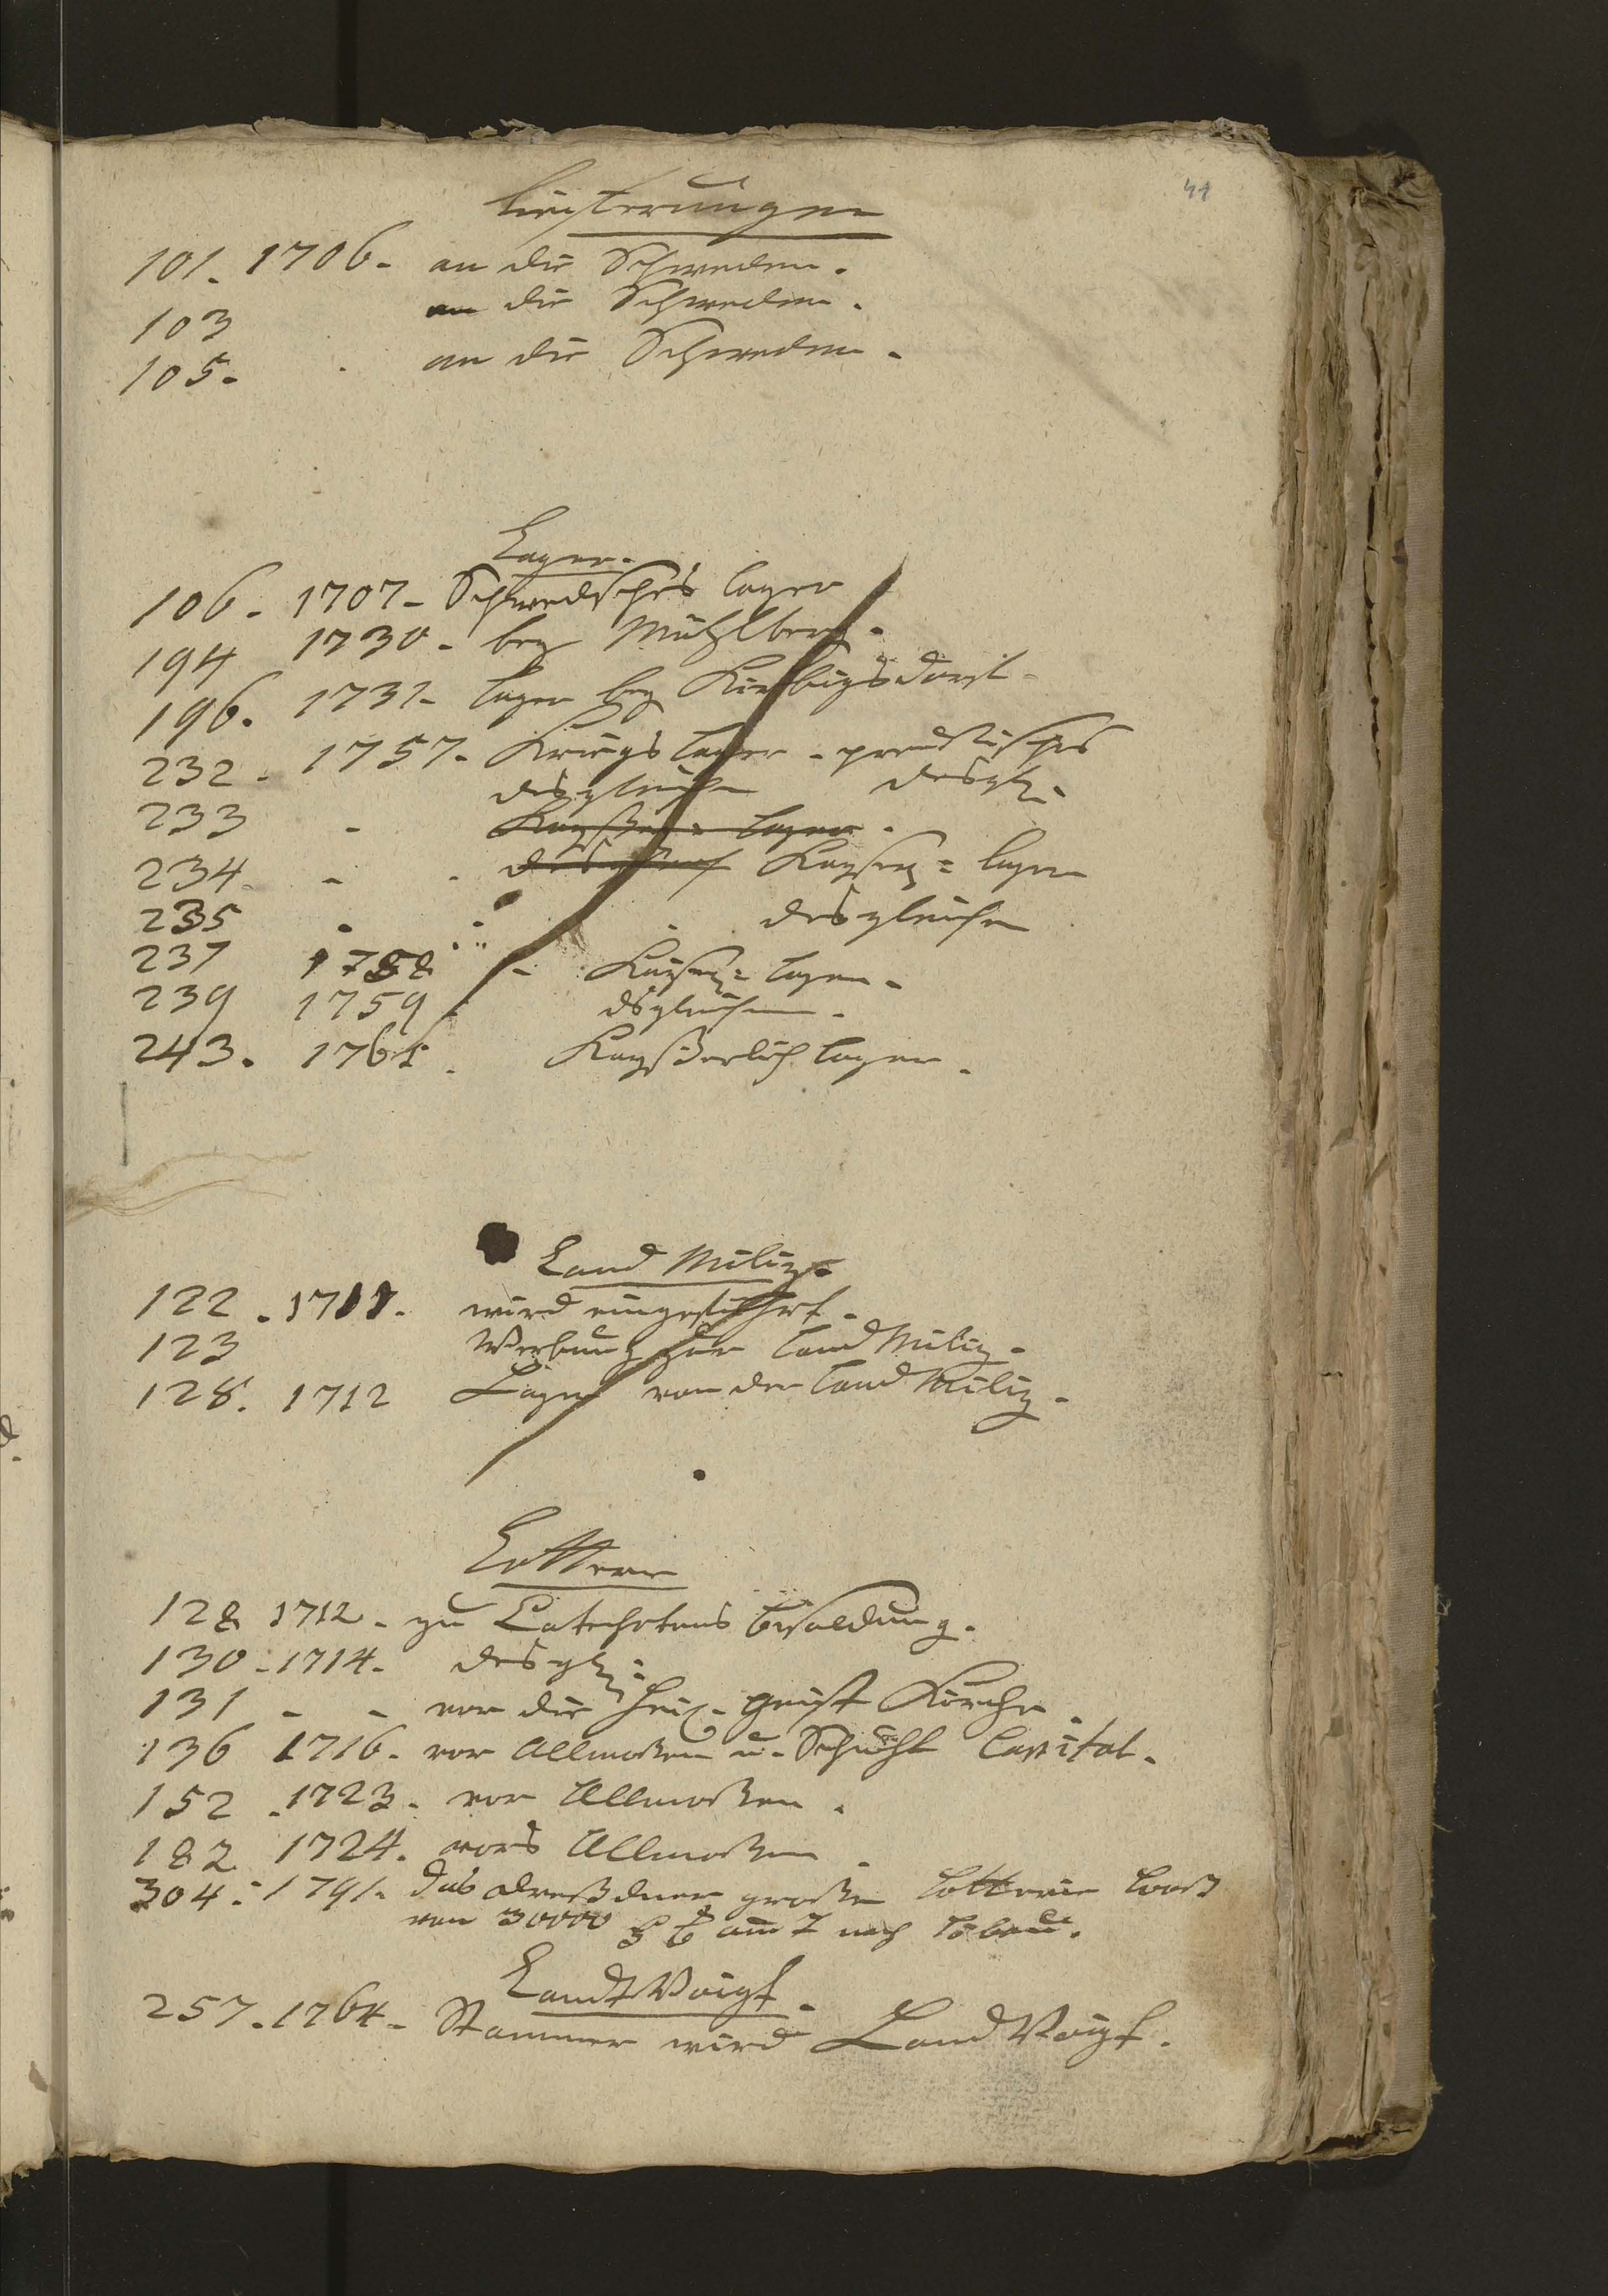 41
Lieferungen
101. 1706. an die Schweden.
103 an die Schweden.
105. an die Schweden.
Lager.
106. 1707. Schwedisches Lager
194 1730. bey Mühlberg.
196. 1731. Lager bey
232. 1757. Kriegs Lager. preußisches
desgleichen desgl.
233 Kayserl. Lager.
234 desgleich Kayserl= Lager
235 desgleichen
237 1758 Kaiserl= Lager.
239 1759 dsgleichen.
243. 1761. Kayßerlich Lager.
Land Miliz.
122. 1711. wird eingeführt.
123 Werbung zur Land Miliz.
128. 1712 Lager von der Land Miliz.
Lotterie
128 1712. zu Catecheten Besoldung.
130. 1714. desgl.
131 - - vor die heil. geist Kirche.
136 1716. vor Allmoßen u. Capital.
152. 1723. vor Allmoßen.
182 1724. vors Allmoßen.
304. 1791. das Dreßdner große Lotterie Looß
von 30000 nach Löbau.
Landt Voigt.
257. 1764. Stammer wird Land Voigt.